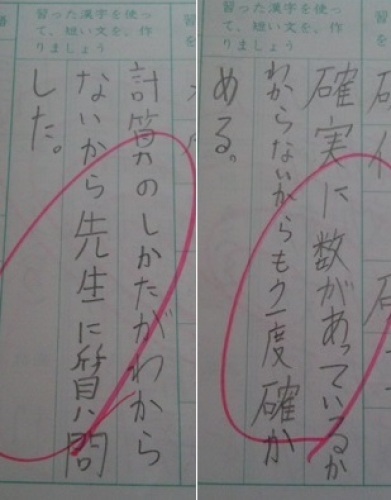 習った漢字を使っ
て、短い文を、作
りましょう
計算のしかたがわから
ないから先生に質問
した。
習った漢字を使っ
て、短い文を、作
りましょう
確実に数があっているか
わからないからもう一度確か
める。